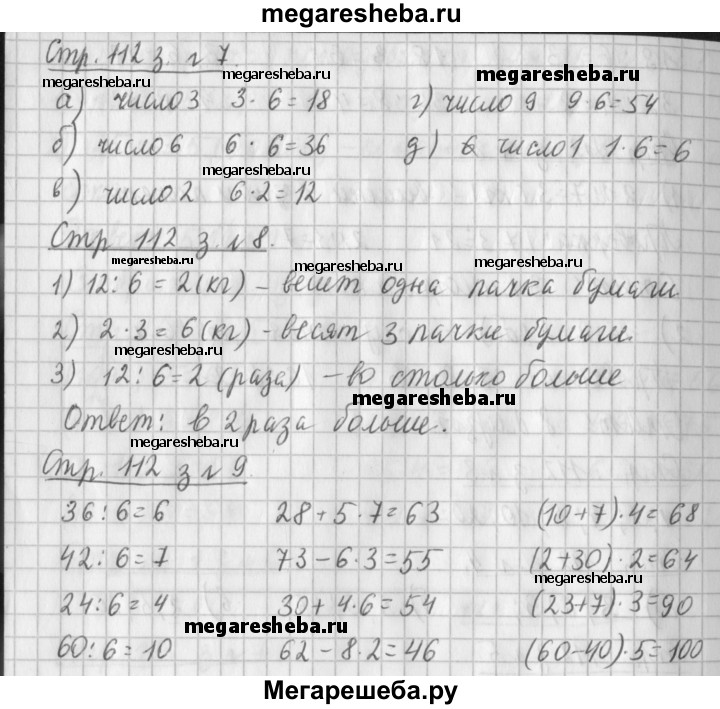 megaresheba.ru
Стр. 112 з. № 7.
megaresheba.ru megaresheba.ru
а) число 3 3 · 6 = 18 г) число 9 9 · 6 = 54
megaresheba.ru
б) число 6 6 · 6 = 36 д) число 1 1 · 6 = 6
megaresheba.ru
в) число 2 6 · 2 = 12
Стр 112 з. № 8.
megaresheba.ru megaresheba.ru megaresheba.ru
1) 12 : 6 = 2 (кг) – весит одна пачка бумаги.
2) 2 · 3 = 6 (кг) - весят 3 пачки бумаги.
megaresheba.ru
3) 12 : 6 = 2 (раза) – во столько больше
megaresheba.ru
Ответ: в 2 раза больше.
megaresheba.ru
Стр. 112 з № 9.
36 : 6 = 6 28 + 5 · 7 = 63 (10 + 7) · 4 = 68
42 : 6 = 7 73 – 6 · 3 = 55 (2 + 30) · 2 = 64
megaresheba.ru
24 : 6 = 4 30 + 4 · 6 = 54 (23 + 7) · 3 = 90
megaresheba.ru megaresheba.ru
60 : 6 = 10 62 – 8 · 2 = 46 (60 – 40) · 5 = 100
Мегарешеба.ру